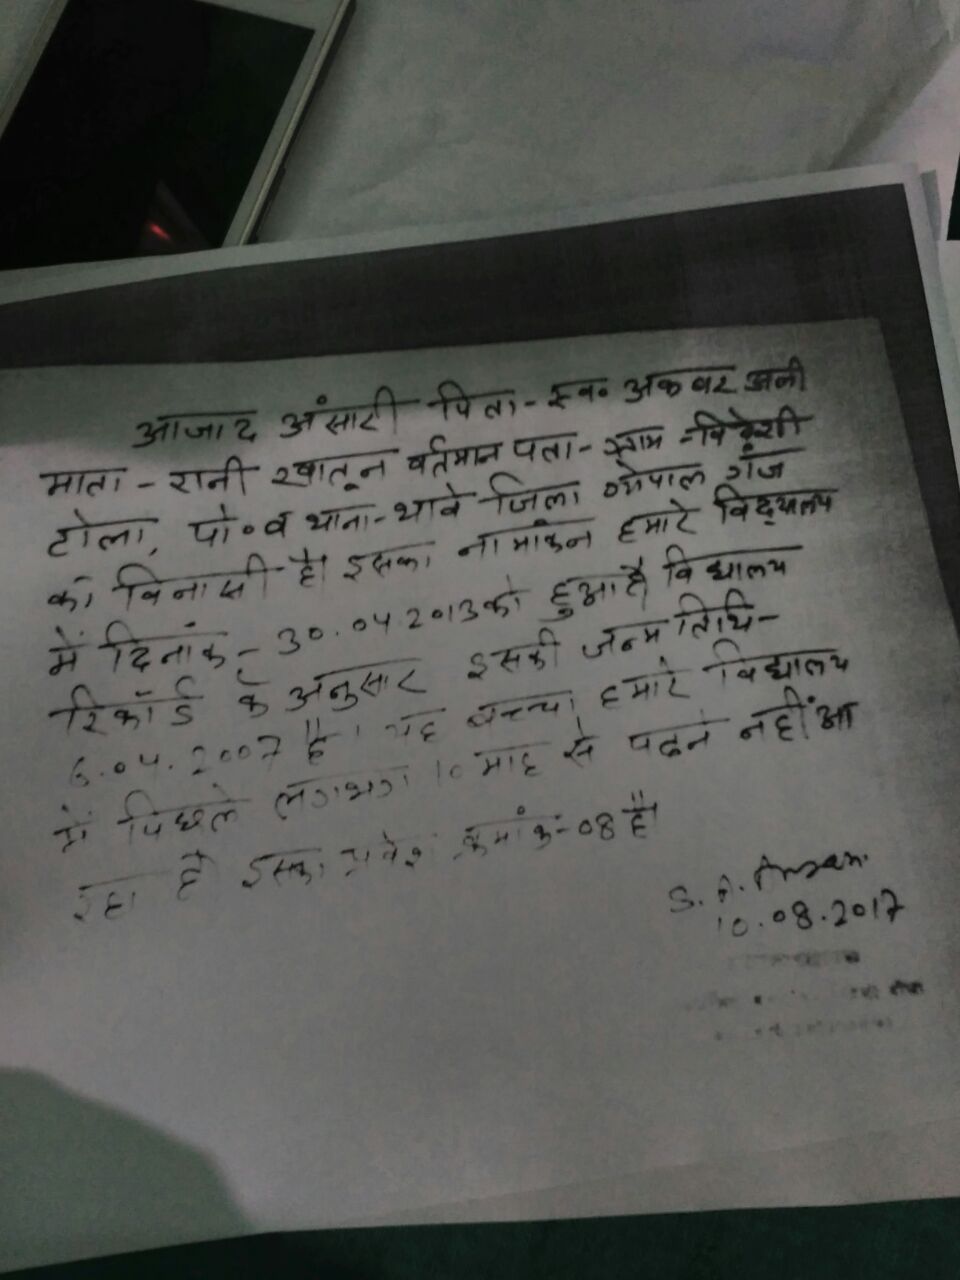 आजाद अंसारी पिता - स्व० अकबर अली
माता - रानी खातून वर्तमान पता - ग्राम - विदेशी
टोला, पो० व थाना - थावे जिला गोपाल गंज
का विनासी है। इसका नामांकन हमारे विद्यालय
में दिनांक - 30.04.2013 को हुआ है विद्यालय
रिकॉर्ड के अनुसार इसकी जन्म तिथि -
6.04.2007 है। यह बच्चा हमारे विद्यालय
में पिछले लगभग 10 माह से पढने नहीं आ
रहा है इसका प्रवेश क्रमांक - 08 है।
S. A. Ansari
10.08.2017